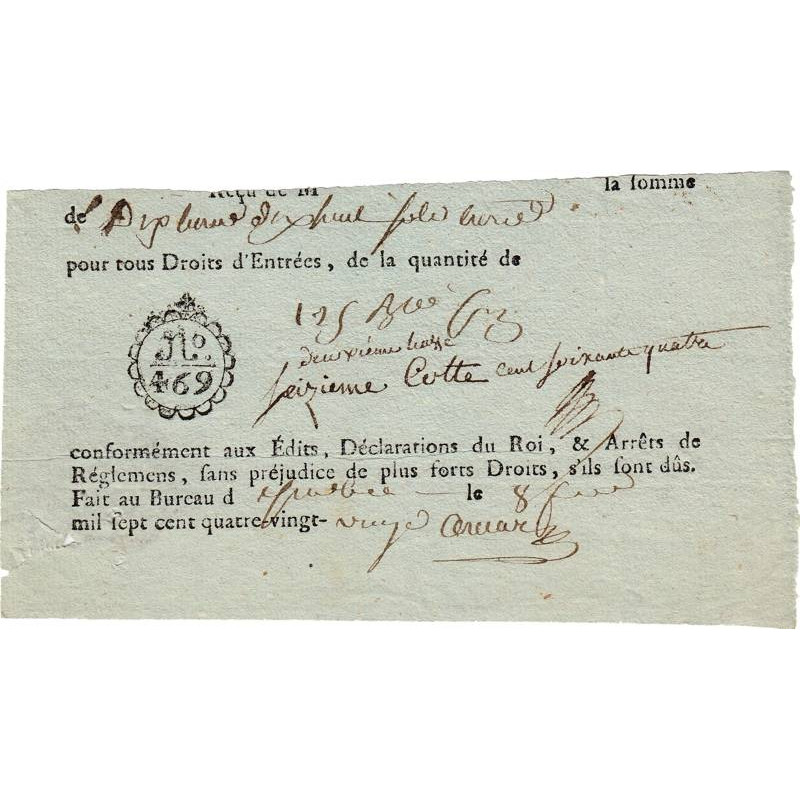 Reçu de M la somme
de Dix livres dixhuit sols
pour tous Droits d'Entrées, de la quantité de
125
deuxieme liasse
No.
469
seizieme Cotte cent soixante quatre
conformément aux Édits, Déclarations du Roi, & Arrêts de
Réglemens, sans préjudice de plus forts Droits, s'ils sont dûs.
Fait au Bureau d le 8
mil sept cent quatre-vingt-